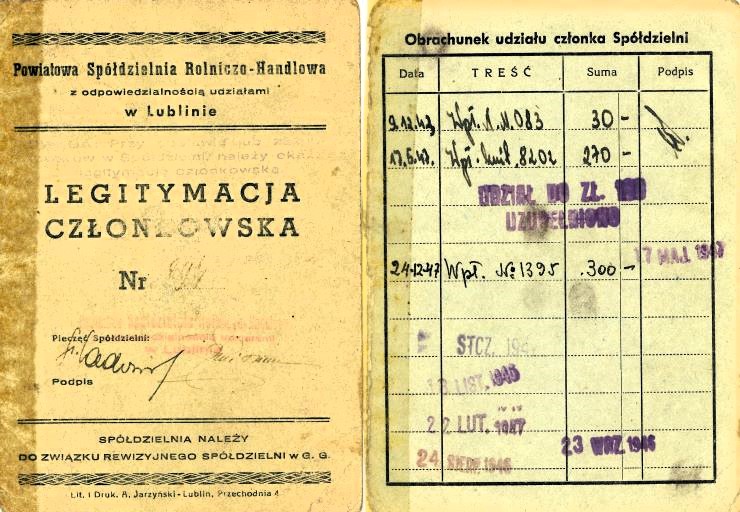 Powiatowa Spółdzielnia Rolniczo-Handlowa
z odpowiedzialnością udziałami
w Lublinie
należy
LEGITYMACJA
CZŁONKOWSKA
Nr
Pieczęć Spółdzielni:
Podpis
SPÓŁDZIELNIA NALEŻY
DO ZWIĄZKU REWIZYJNEGO SPÓŁDZIELNI w G. G.
Lit. i Druk. A. Jarzyński - Lublin, Przechodnia 4
Obrachunek udziału członka Spółdzielni
Data TREŚĆ Suma Podpis
9.12.43 Wpł. 083 30 -
Wpł. 8202 270 -
UDZIAŁ DO ZŁ.
UZUPEŁNIONO
17 MAJ 1947
24-12-47 Wpł. № 1395 300 -
STCZ. 194
LIST. 1946
22 LUT. 1947
23 WRZ. 1946
24 SIERP. 1946